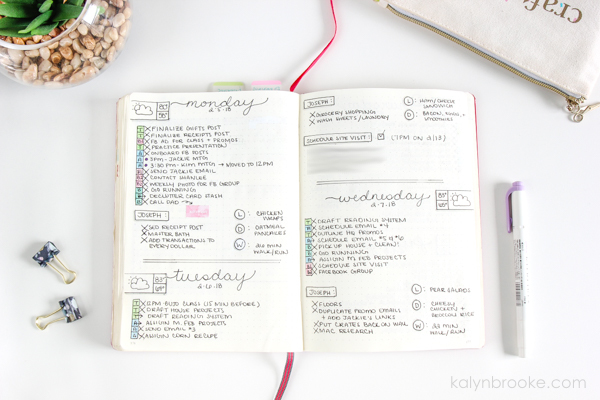 craft
monday
2.5.18
80°
56°
FINALIZE GIFTS POST
FINALIZE RECEIPTS POST
FB AD FOR CLASS + PROMOS
PRACTICE PRESENTATION
ONBOARD FB POSTS
3PM - JACKIE MTG
3:30 PM - KIM MTG → MOVED TO 12PM
SEND JACKIE EMAIL
CONTACT
WEEKLY PHOTO FOR FB GROUP
GO RUNNING
DECLUTTER CARD STASH
CALL DAD
JOSEPH
SEO RECEIPT POST
MASTER BATH
ADD TRANSACTIONS TO
EVERY DOLLAR
L: CHICKEN
WRAPS
D: OATMEAL
PANCAKES
W: 20 MIN
WALK/RUN
tuesday
2.6.18
80°
12PM - BLDG CLASS (15 MIN BEFORE)
DRAFT HOUSE PROJECTS
DRAFT READING SYSTEM
ASSIGN M. FEB PROJECTS
SEND EMAIL #3
ASSIGN CORN RECIPE
JOSEPH:
GROCERY SHOPPING
WASH SHEETS/LAUNDRY
L: HAM/CHEESE
SANDWICH
D: BACON, EGGS, +
SMOOTHIES
SCHEDULE SITE VISIT:
(7PM ON 2/13)
wednesday
2.7.18
DRAFT READING SYSTEM
SCHEDULE EMAIL #4
OUTLINE MG PROMOS
SCHEDULE EMAIL #5 & #6
PICK UP HOUSE + CLEAN!
GO RUNNING
ASSIGN M. FEB PROJECTS
SCHEDULE SITE VISIT
FACEBOOK GROUP
JOSEPH:
FLOORS
DUPLICATE PROMO EMAILS
+ ADD JACKIE'S LINKS
PUT CRATES BACK ON WALL
MAC RESEARCH
L: PEAR SALADS
D: CHEESY
CHICKEN +
BROCCOLI RICE
W: 23 MIN
WALK/RUN
kalynbrooke.com